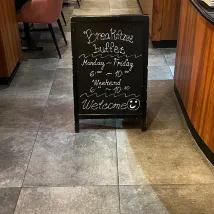 Breakfast
buffet
Monday - Friday
6⁰⁰ - 10⁰⁰
Weekend
6³⁰ - 10³⁰
Welcome